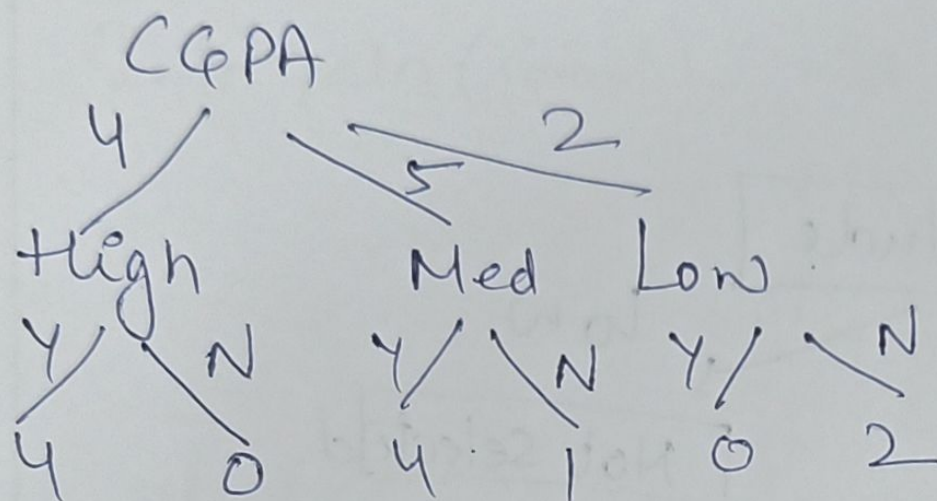 CGPA
4 5 2
High Med Low
Y N Y N Y N
4 0 4 1 0 2